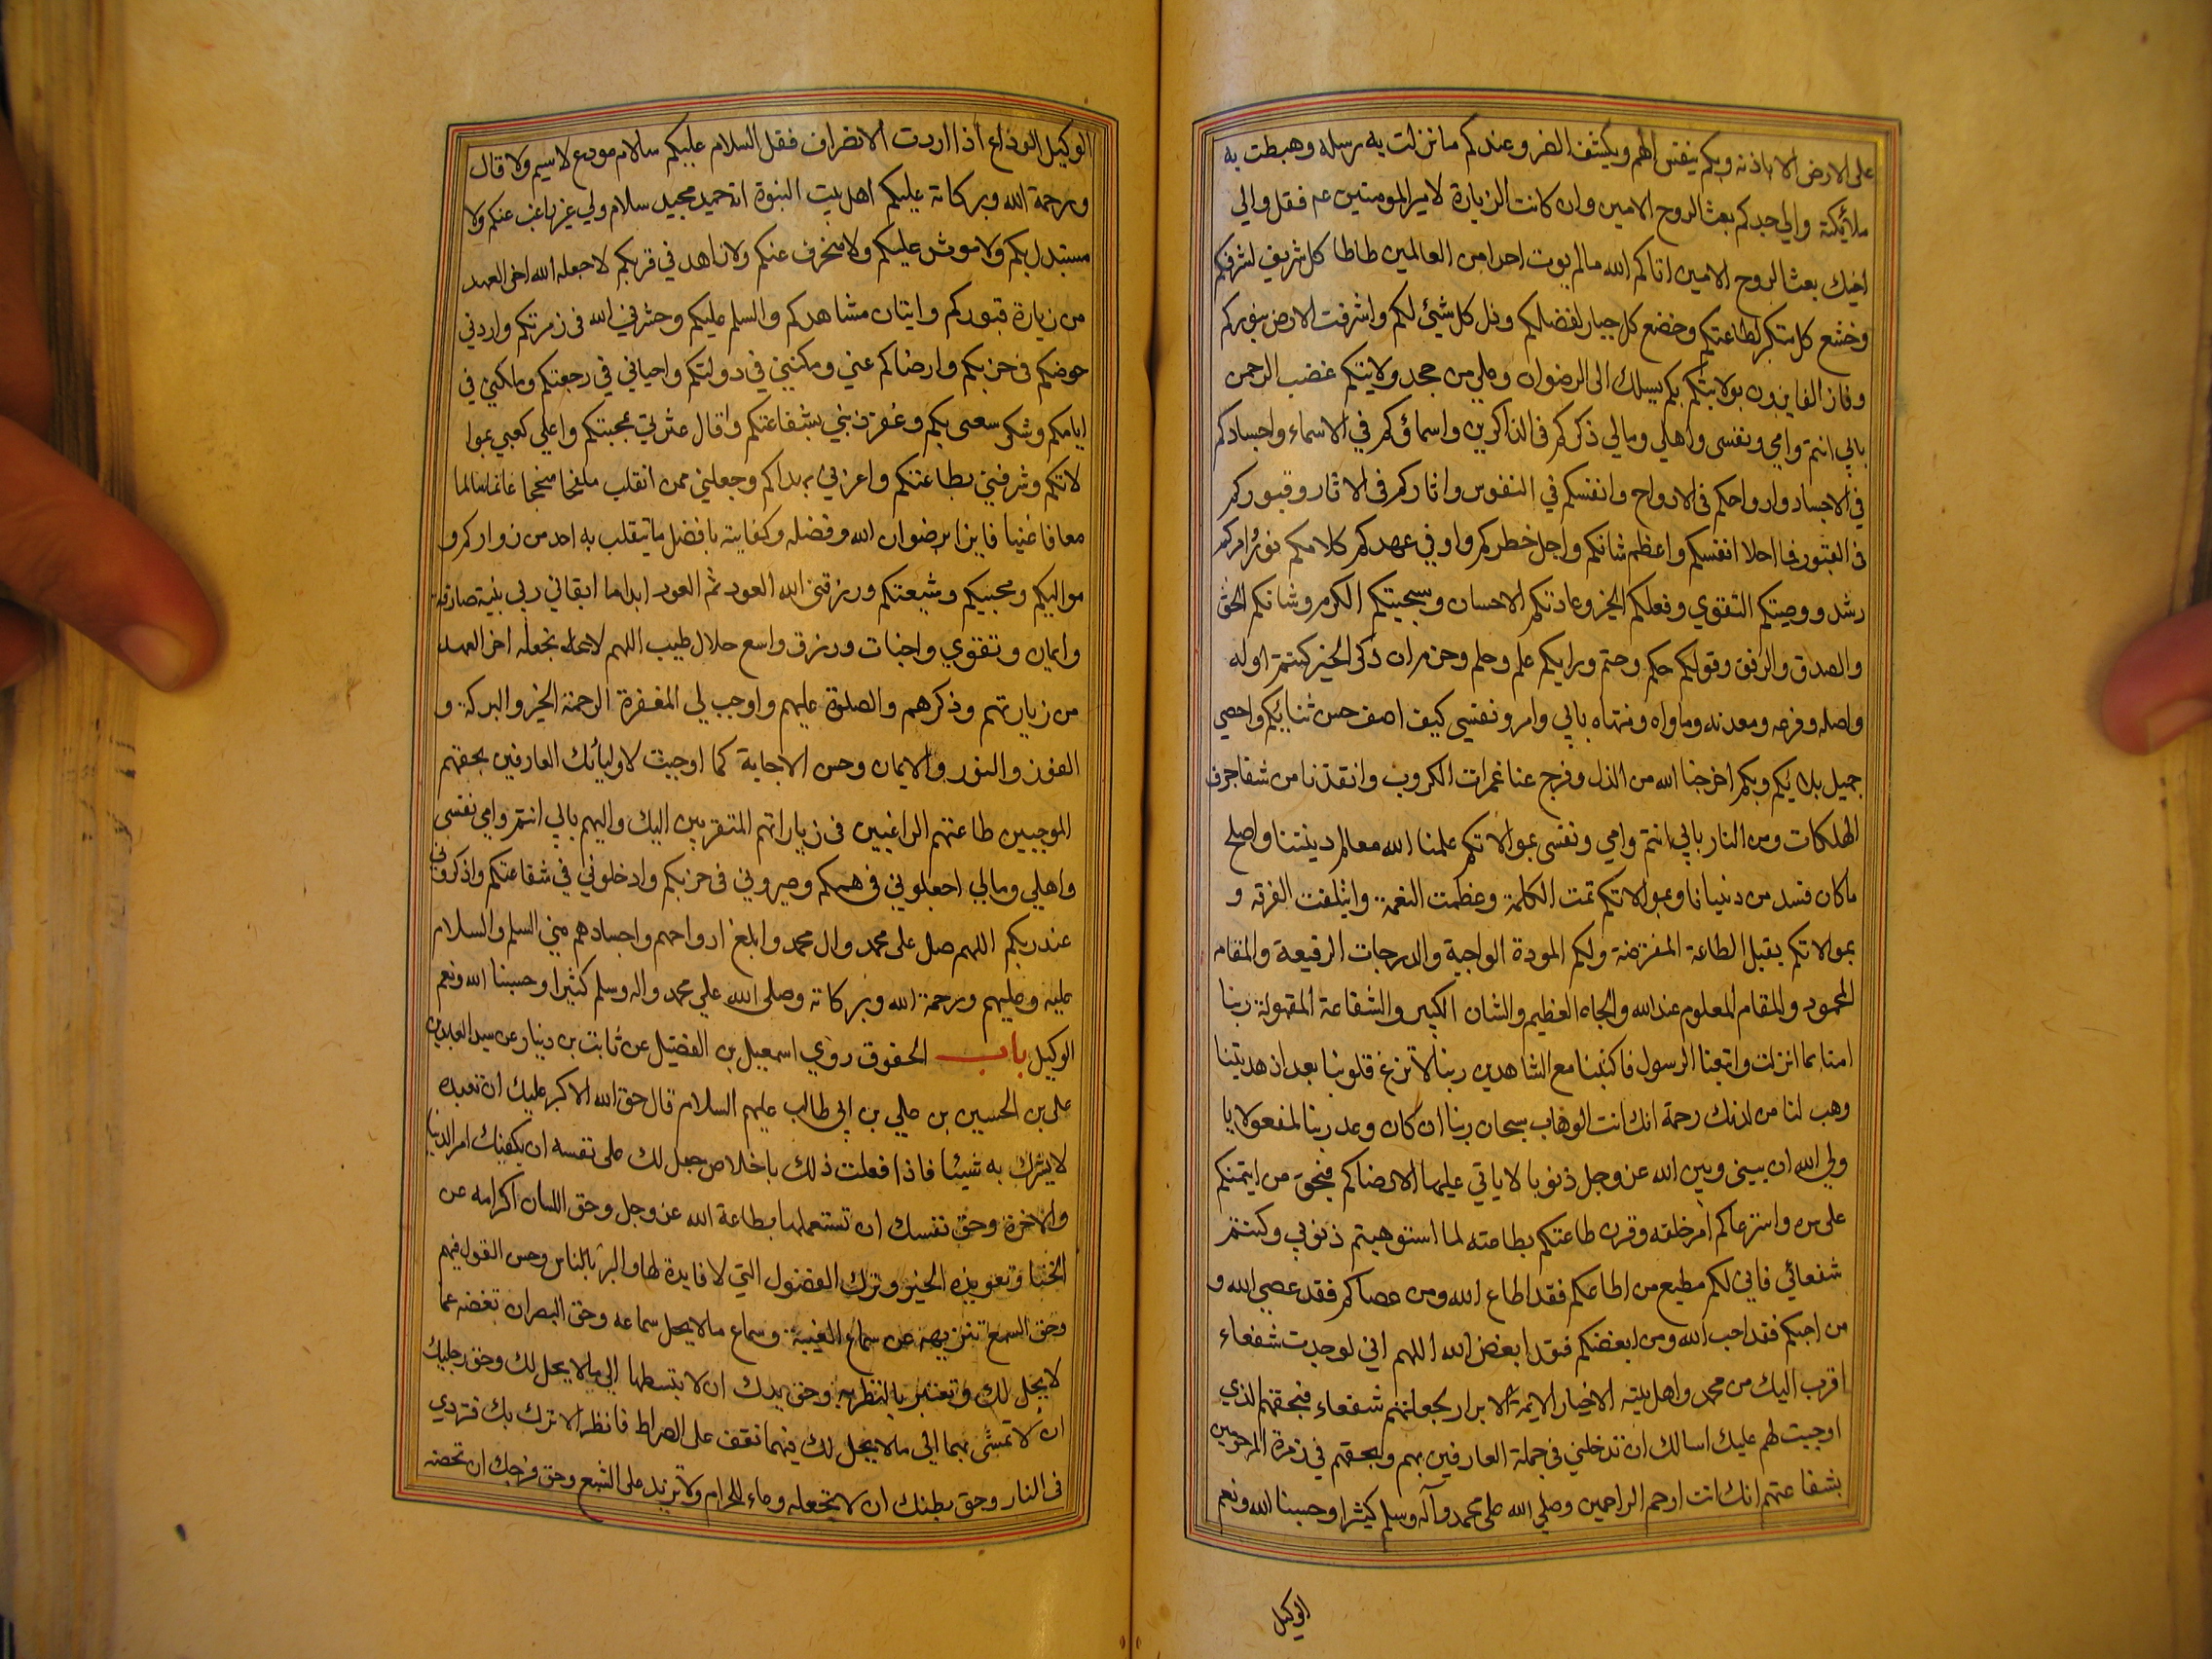 على الارض الا باذنه وبكم ينفس الهم ويكشف الضر وعندكم ما نزلت به رسله وهبطت به
ملائكته والي جدكم بعث الروح الامين وان كانت الزيارة لامير المومنين عم فقل والي
اخيك بعث الروح الامين اتاكم الله مالم يوت احدا من العالمين طاطا كل شريف لشرفكم
وخشع كل متكبر لطاعتكم وخضع كل جبار لفضلكم وذل كل شيئ لكم واشرقت الارض بنوركم
وفاز الفايزون بولايتكم بكم يسلك الى الرضوان وعلي من جحد ولايتكم غضب الرحمن
بابي انتم وامي ونفسي واهلي ومالي ذكركم في الذاكرين واسماؤكم في الاسماء واجسادكم
في الاجساد وارواحكم في الارواح وانفسكم في النفوس واثاركم في الاثار وقبوركم
في القبور فما احلا انفسكم واعظم شانكم واجل خطركم واوفي عهدكم كلامكم نور وامركم
رشد ووصيتكم التقوي وفعلكم الخير وعادتكم الاحسان وسجيتكم الكرم وشانكم الحق
والصدق والرفق وقولكم حكم وحتم ورايكم علم وحلم وحزم ان ذكر الخير كنتم اوله
واصله وفرعه ومعدنه وماواه ومنتهاه بابي وامي ونفسي كيف اصف حسن ثنايكم واحصي
جميل بلايكم وبكم اخرجنا الله من الذل وفرج عنا غمرات الكروب وانقذنا من شفا جرف
الهلكات ومن النار بابي انتم وامي ونفسي بموالاتكم علمنا الله معالم ديننا واصلح
ما كان فسد من دنيانا وبموالاتكم تمت الكلمة وعظمت النعمة وايتلفت الفرقه و
بموالاتكم يقبل الطاعة المفترضة ولكم المودة الواجبة والدرجات الرفيعة والمقام
المحمود والمقام المعلوم عند الله والجاه العظيم والشان الكبير والشفاعة المقبولة ربنا
امنا بما انزلت واتبعنا الرسول فاكتبنا مع الشاهدين ربنا لا تزغ قلوبنا بعد اذ هديتنا
وهب لنا من لدنك رحمة انك انت الوهاب سبحان ربنا ان كان وعد ربنا لمفعولا يا
ولي الله ان بيني وبين الله عز وجل ذنوبا لا ياتي عليها الا رضاكم فبحق من ايتمنكم
على سره واسترعاكم امر خلقه وقرن طاعتكم بطاعته لما استوهبتم ذنوبي وكنتم
شفعائي فاني لكم مطيع من اطاعكم فقد اطاع الله ومن عصاكم فقد عصي الله و
من احبكم فقد احب الله ومن ابغضكم فقد ابغض الله اللهم اني لو وجدت شفعاء
اقرب اليك من محمد واهل بيته الاخيار الايمة الابرار لجعلتهم شفعاء فبحقهم الذي
اوجبت لهم عليك اسالك ان تدخلني في جملة العارفين بهم وبحقهم في زمرة المرحومين
بشفاعتهم انك انت ارحم الراحمين وصلي الله على محمد وآله وسلم كثيرا وحسبنا الله ونعم
الوكيل
الوكيل الوداع اذا اردت الانصراف فقل السلام عليكم سلام مودع لا سيم ولا قال
ورحمة الله وبركاته عليكم اهل بيت النبوة انه حميد مجيد سلام ولي غير راغب عنكم ولا
مستبدل بكم ولا موثر عليكم ولا منحرف عنكم ولا زاهد في قربكم لا جعله الله اخر العهد
من زيارة قبوركم وايتان مشاهدكم والسلم عليكم وحشرني الله في زمرتكم واردني
حوضكم في حزبكم وارضاكم عني ومكنني في دولتكم واحياني في رجعتكم وملكني في
ايامكم وشكر سعيي بكم وغفر ذنبي بشفاعتكم واقال عثرتي بمحبتكم واعلي كعبي بموا
لاتكم وشرفني بطاعتكم واعزني بهداكم وجعلني ممن انقلب مفلحا منجحا غانما سالما
معافا غنيا فايزا برضوان الله وفضله وكفايته بافضل ما ينقلب به احد من زواركم و
مواليكم ومحبيكم وشيعتكم ورزقني الله العود ثم العود ابدا ما ابقاني ربي بنية صادقة
وايمان وتقوي واخبات ورزق واسع حلال طيب اللهم لا تجعله اخر العهد
من زيارتهم وذكرهم والصلوة عليهم واوجب لي المغفرة الرحمة الخير والبركة و
الفوز والنور والايمان وحسن الاجابة كما اوجبت لاوليائك العارفين بحقهم
الموجبين طاعتهم الراغبين في زياراتهم المتقربين اليك واليهم بابي انتم وامي نفسي
واهلي ومالي اجعلوني في همكم وصيروني في حزبكم وادخلوني في شفاعتكم واذكروني
عند ربكم اللهم صل على محمد وال محمد وابلغ ارواحهم واجسادهم مني السلم والسلام
عليه وعليهم ورحمة الله وبركاته وصلى الله علي محمد واله وسلم كثيرا وحسبنا الله ونعم
الوكيل باب الحقوق روي اسمعيل بن الفضيل عن ثابت بن دينار عن سيد العابدين
على بن الحسين بن علي بن ابي طالب عليهم السلام قال حق الله الاكبر عليك ان تعبده
لا يشرك به شيئا فاذا فعلت ذلك باخلاص جعل لك على نفسه ان يكفيك امر الدنيا
والاخرة وحق نفسك ان تستعملها بطاعة الله عز وجل وحق اللسان اكرامه عن
الخنا وتعويده الخير وترك الفضول التي لا فايدة لها والبر بالناس وحسن القول فيهم
وحق السمع تنزيهه عن سماع الغيبة وسماع ما لا يحل سماعه وحق البصر ان تغضه عما
لا يحل لك وتعتبر بالنظر به وحق يدك ان لا تبسطها الي ما لا يحل لك وحق رجليك
ان لا تمشي بهما الي ما لا يحل لك فبهما تقف على الصراط فانظر الا تزل بك فتردي
في النار وحق بطنك ان لا تجعله وعاء للحرام ولا تزيد على الشبع وحق فرجك ان تحصنه